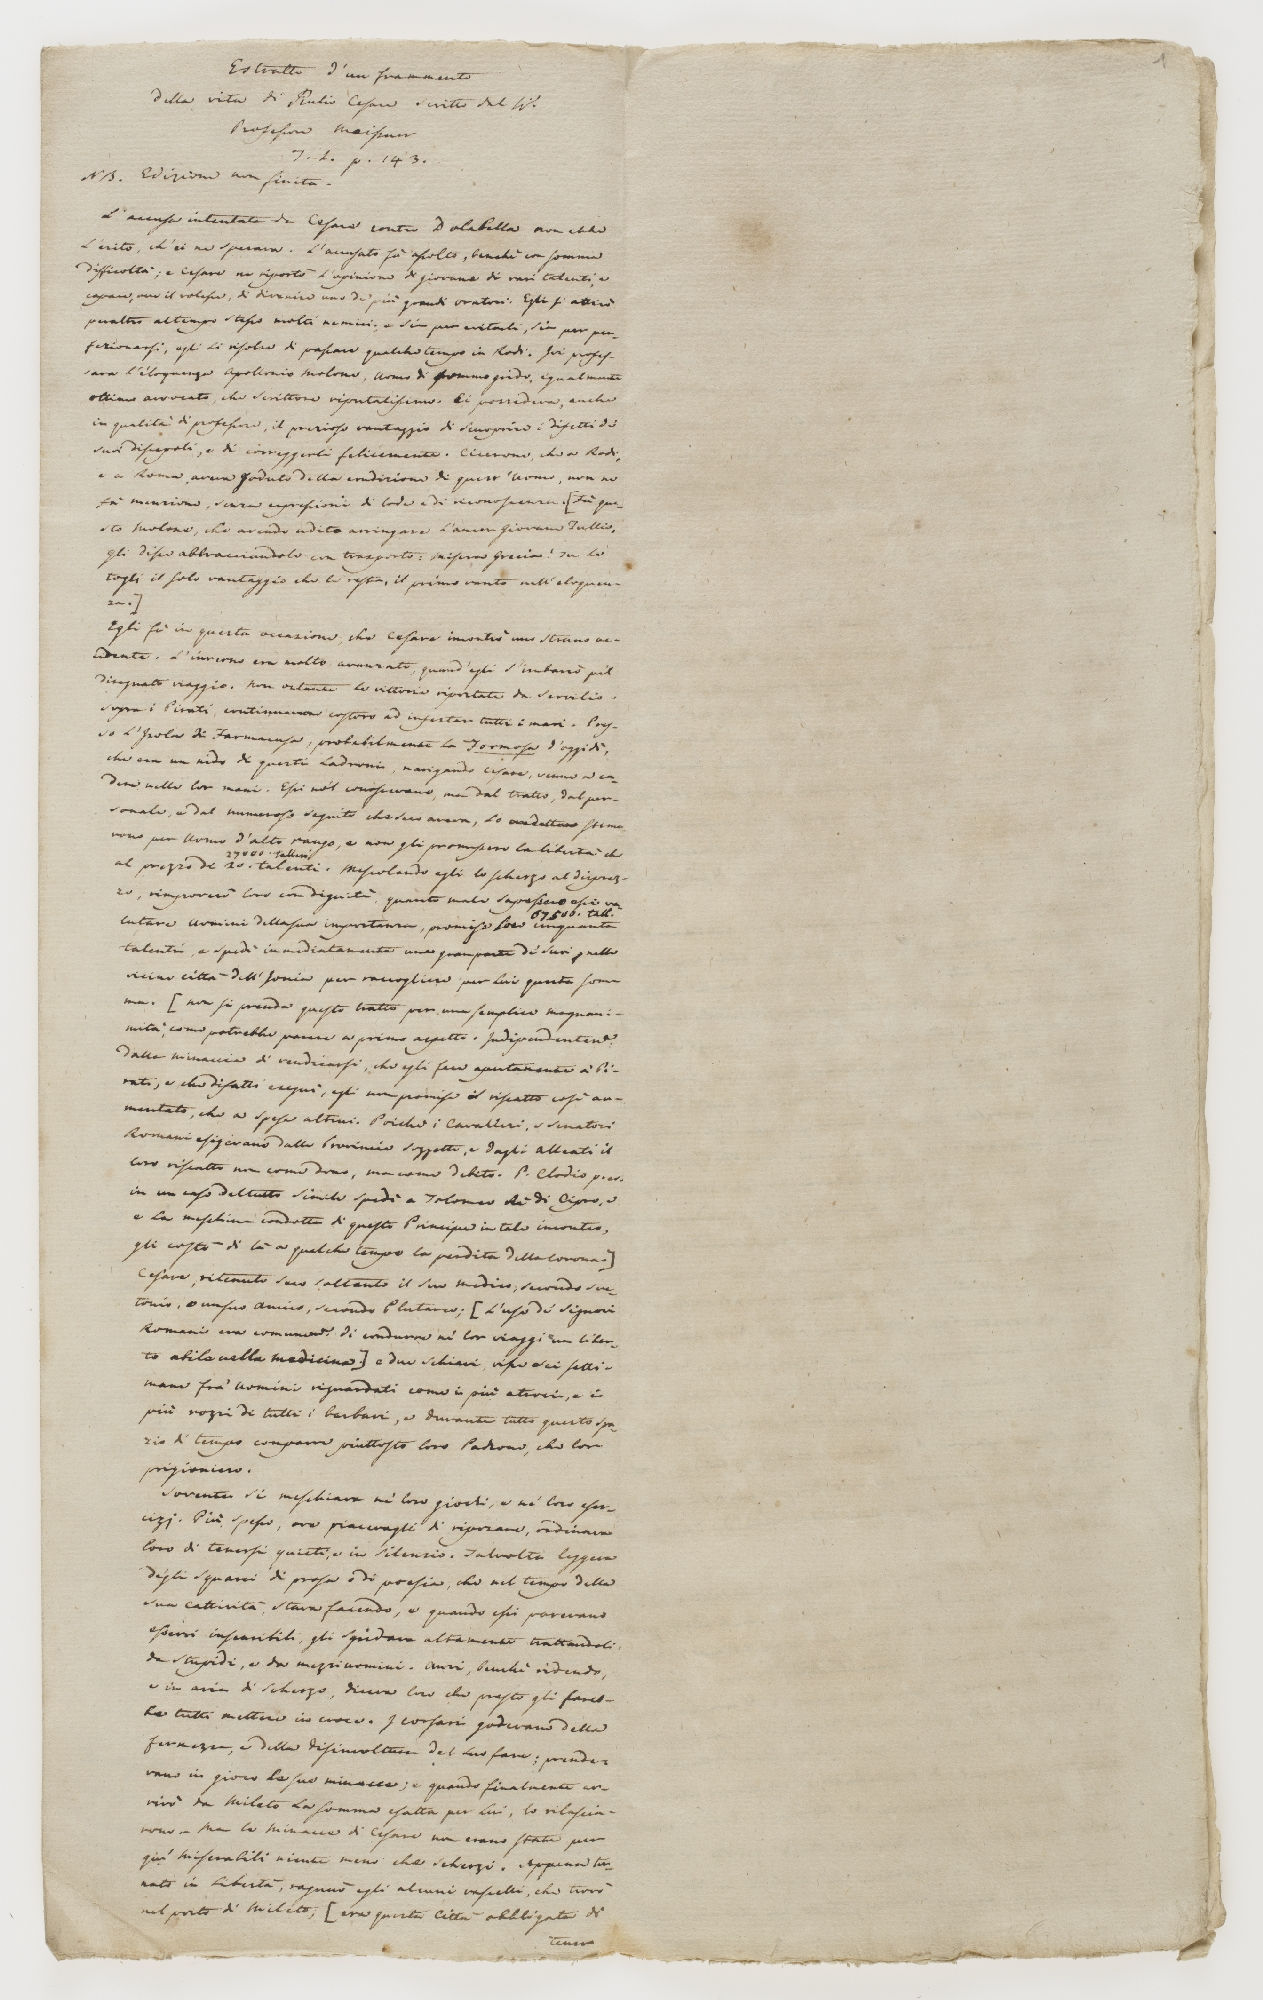 Estratto d'un frammento
della vita di Giulio Cesare scritto dal Sig.r
Professore Meissner
T. I. p. 143.
NB. Edizione non finita.
L'accusa intentata da Cesare contro Dolabella non ebbe
l'esito, ch'ei ne sperava. L'accusato fù assolto, benchè con somma
difficoltà; e Cesare ne riportò l'opinione di giovane di rari talenti, e
capace, ove il volesse, di divenire uno de' più grandi oratori. Egli si attirò
peraltro al tempo stesso molti nemici; e sia per evitarli, sia per per-
fezionarsi, egli si risolse di passare qualche tempo in Rodi. Ivi profes-
sava l'eloquenza Apollonio Molone, uomo di sommo grido, egualmente
ottimo avvocato, che scrittore riputatissimo. Ei possedeva, anche
in qualità di professore, il prezioso vantaggio di scuoprire i difetti de'
suoi discepoli, e di correggerli felicemente. Cicerone, che a Rodi,
e a Roma aveva goduto della erudizione di quest'uomo, non ne
fà menzione, senza espressioni di lode e di riconoscenza. [Fù que-
sto Molone, che avendo udito arringare l'ancor giovane Tullio,
gli disse abbracciandolo con trasporto: misera Grecia! tu le
togli il solo vantaggio che le resta, il primo vanto nell'eloquen-
za.]
Egli fù in questa occasione, che Cesare incontrò uno strano ac-
cidente. L'inverno era molto avanzato, quand'egli s'imbarcò pel
disegnato viaggio. Non ostante le vittorie riportate da Servilio
sopra i Pirati, continuavano costoro ad infestar tutti i mari. Pres-
so l'Isola di Farmacusa, probabilmente la Formosa d'oggidì,
che era un nido di questi Ladroni, navigando Cesare, venne a ca-
dere nelle lor mani. Essi no'l conoscevano, ma dal tratto, dal per-
sonale, e dal numeroso seguito che seco aveva, lo credettero stima-
rono per uomo d'alto rango, e non gli promisero la libertà che
27000. Talleri
al prezzo di 20. talenti. Mescolando egli lo scherzo al disprez-
zo, rimproverò loro con dignità, quanto male sapessero essi va-
67500. tall.
lutare uomini della sua importanza, promise loro cinquanta
talenti, e spedì immediatamente una gran parte de' suoi nelle
vicine città dell'Jonia per raccogliere per lui questa som-
ma. [non si prenda questo tratto per una semplice magnani-
mità, come potrebbe parere a primo aspetto. Indipendentem.e
dalla minaccia di vendicarsi, che egli fece apertamente a' Pi-
rati, e che difatti eseguì, egli non promise il riscatto così au-
mentato, che a spese altrui. Poichè i Cavalieri, e Senatori
Romani esigevano dalle Provincie soggette, e dagli alleati il
loro riscatto non come dono, ma come debito. P. Clodio p. es.
in un caso del tutto simile spedì a Tolomeo Rè di Cipro, e
e la meschina condotta di questo Principe in tale incontro,
gli costò di là a qualche tempo la perdita della corona.]
Cesare, ritenuto seco soltanto il suo medico, secondo Sve-
tonio, o un suo amico, secondo Plutarco; [L'uso de' Signori
Romani era comunem.e di condurre ne' lor viaggi un liber-
to abile nella medicina] e due schiavi, visse sei setti-
mane fra' uomini riguardati come i più atroci, e i
più rozzi di tutti i barbari, e durante tutto questo spa-
zio di tempo comparve piuttosto loro Padrone, che lor
prigioniero.
Sovente si meschiava ne' loro giochi, e ne' loro eser-
cizj. Più spesso, ove piacevagli di riposare, ordinava
loro di tenersi quieti, e in silenzio. Talvolta leggeva
degli squarci di prosa o di poesia, che nel tempo della
sua cattività stava facendo, e quando essi parevano
esservi insensibili, gli sgridava altamente trattandoli
da stupidi, e da mezzi uomini. Anzi, benchè ridendo,
e in aria di scherzo, diceva loro che presto gli fareb-
be tutti mettere in croce. I corsari godevano della
fermezza, e della disinvoltura del suo fare; prende-
vano in gioco le sue minacce; e quando finalmente ar-
rivò da Mileto la somma esatta per lui, lo rilascia-
rono. Ma le minacce di Cesare non erano state per
quei miserabili niente meno che scherzi. Appena tor-
nato in libertà, ragunò egli alcuni vascelli, che trovò
nel porto di Mileto, [era questa Città obbligata di
tenere
1